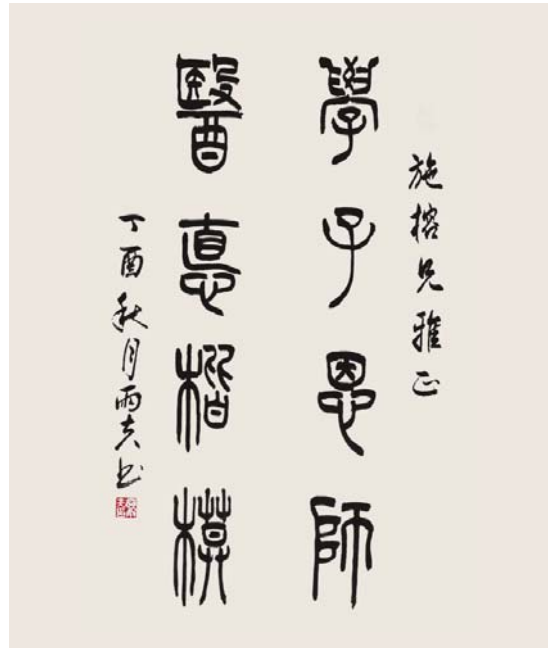 施榕兄雅正
學子恩師
醫悳楷模
丁酉秋月雨夫书